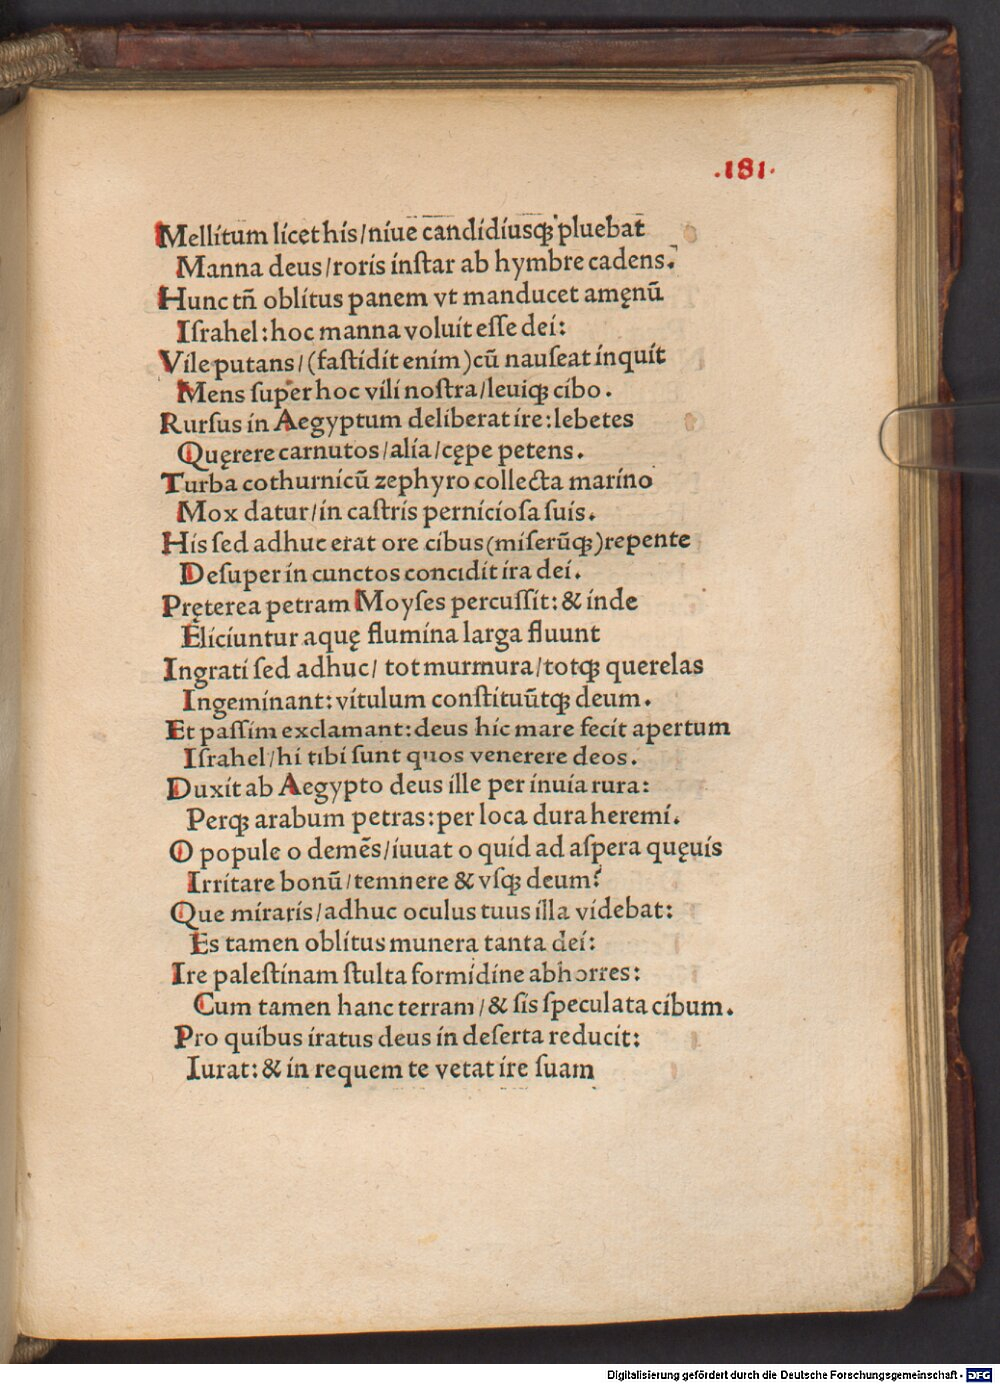 .181.
Mellitum licet his/niue candidiusqꝫ pluebat
Manna deus/roris inſtar ab hymbre cadens.
Hunc tñ oblitus panem vt manducet amęnū
Iſrahel:hoc manna voluit eſſe dei:
Vile putans/(faſtidit enim)cū nauſeat inquit
Mens ſuper hoc vili noſtra/leuiqꝫ cibo.
Rurſus in Aegyptum deliberat ire:lebetes
Quęrere carnutos/alia/cępe petens.
Turba cothurnicū zephyro collecta marino
Mox datur/in caſtris pernicioſa ſuis.
His ſed adhuc erat ore cibus(miſerūqꝫ)repente
Deſuper in cunctos concidit ira dei.
Pręterea petram Moyſes percuſſit:& inde
Eliciuntur aquę flumina larga fluunt
Ingrati ſed adhuc/ tot murmura/totqꝫ querelas
Ingeminant:vitulum conſtituūtqꝫ deum.
Et paſſim exclamant:deus hic mare fecit apertum
Iſrahel/hi tibi ſunt quos venerere deos.
Duxit ab Aegypto deus ille per inuia rura:
Perqꝫ arabum petras:per loca dura heremi.
O popule o demēs/iuuat o quid ad aſpera quęuis
Irritare bonū/temnere & vſqꝫ deum?
Que miraris/adhuc oculus tuus illa videbat:
Es tamen oblitus munera tanta dei:
Ire paleſtinam ſtulta formidine abhorres:
Cum tamen hanc terram/& ſis ſpeculata cibum.
Pro quibus iratus deus in deſerta reducit:
Iurat:& in requem te vetat ire ſuam
Digitalisierung gefördert durch die Deutsche Forschungsgemeinschaft - DFG